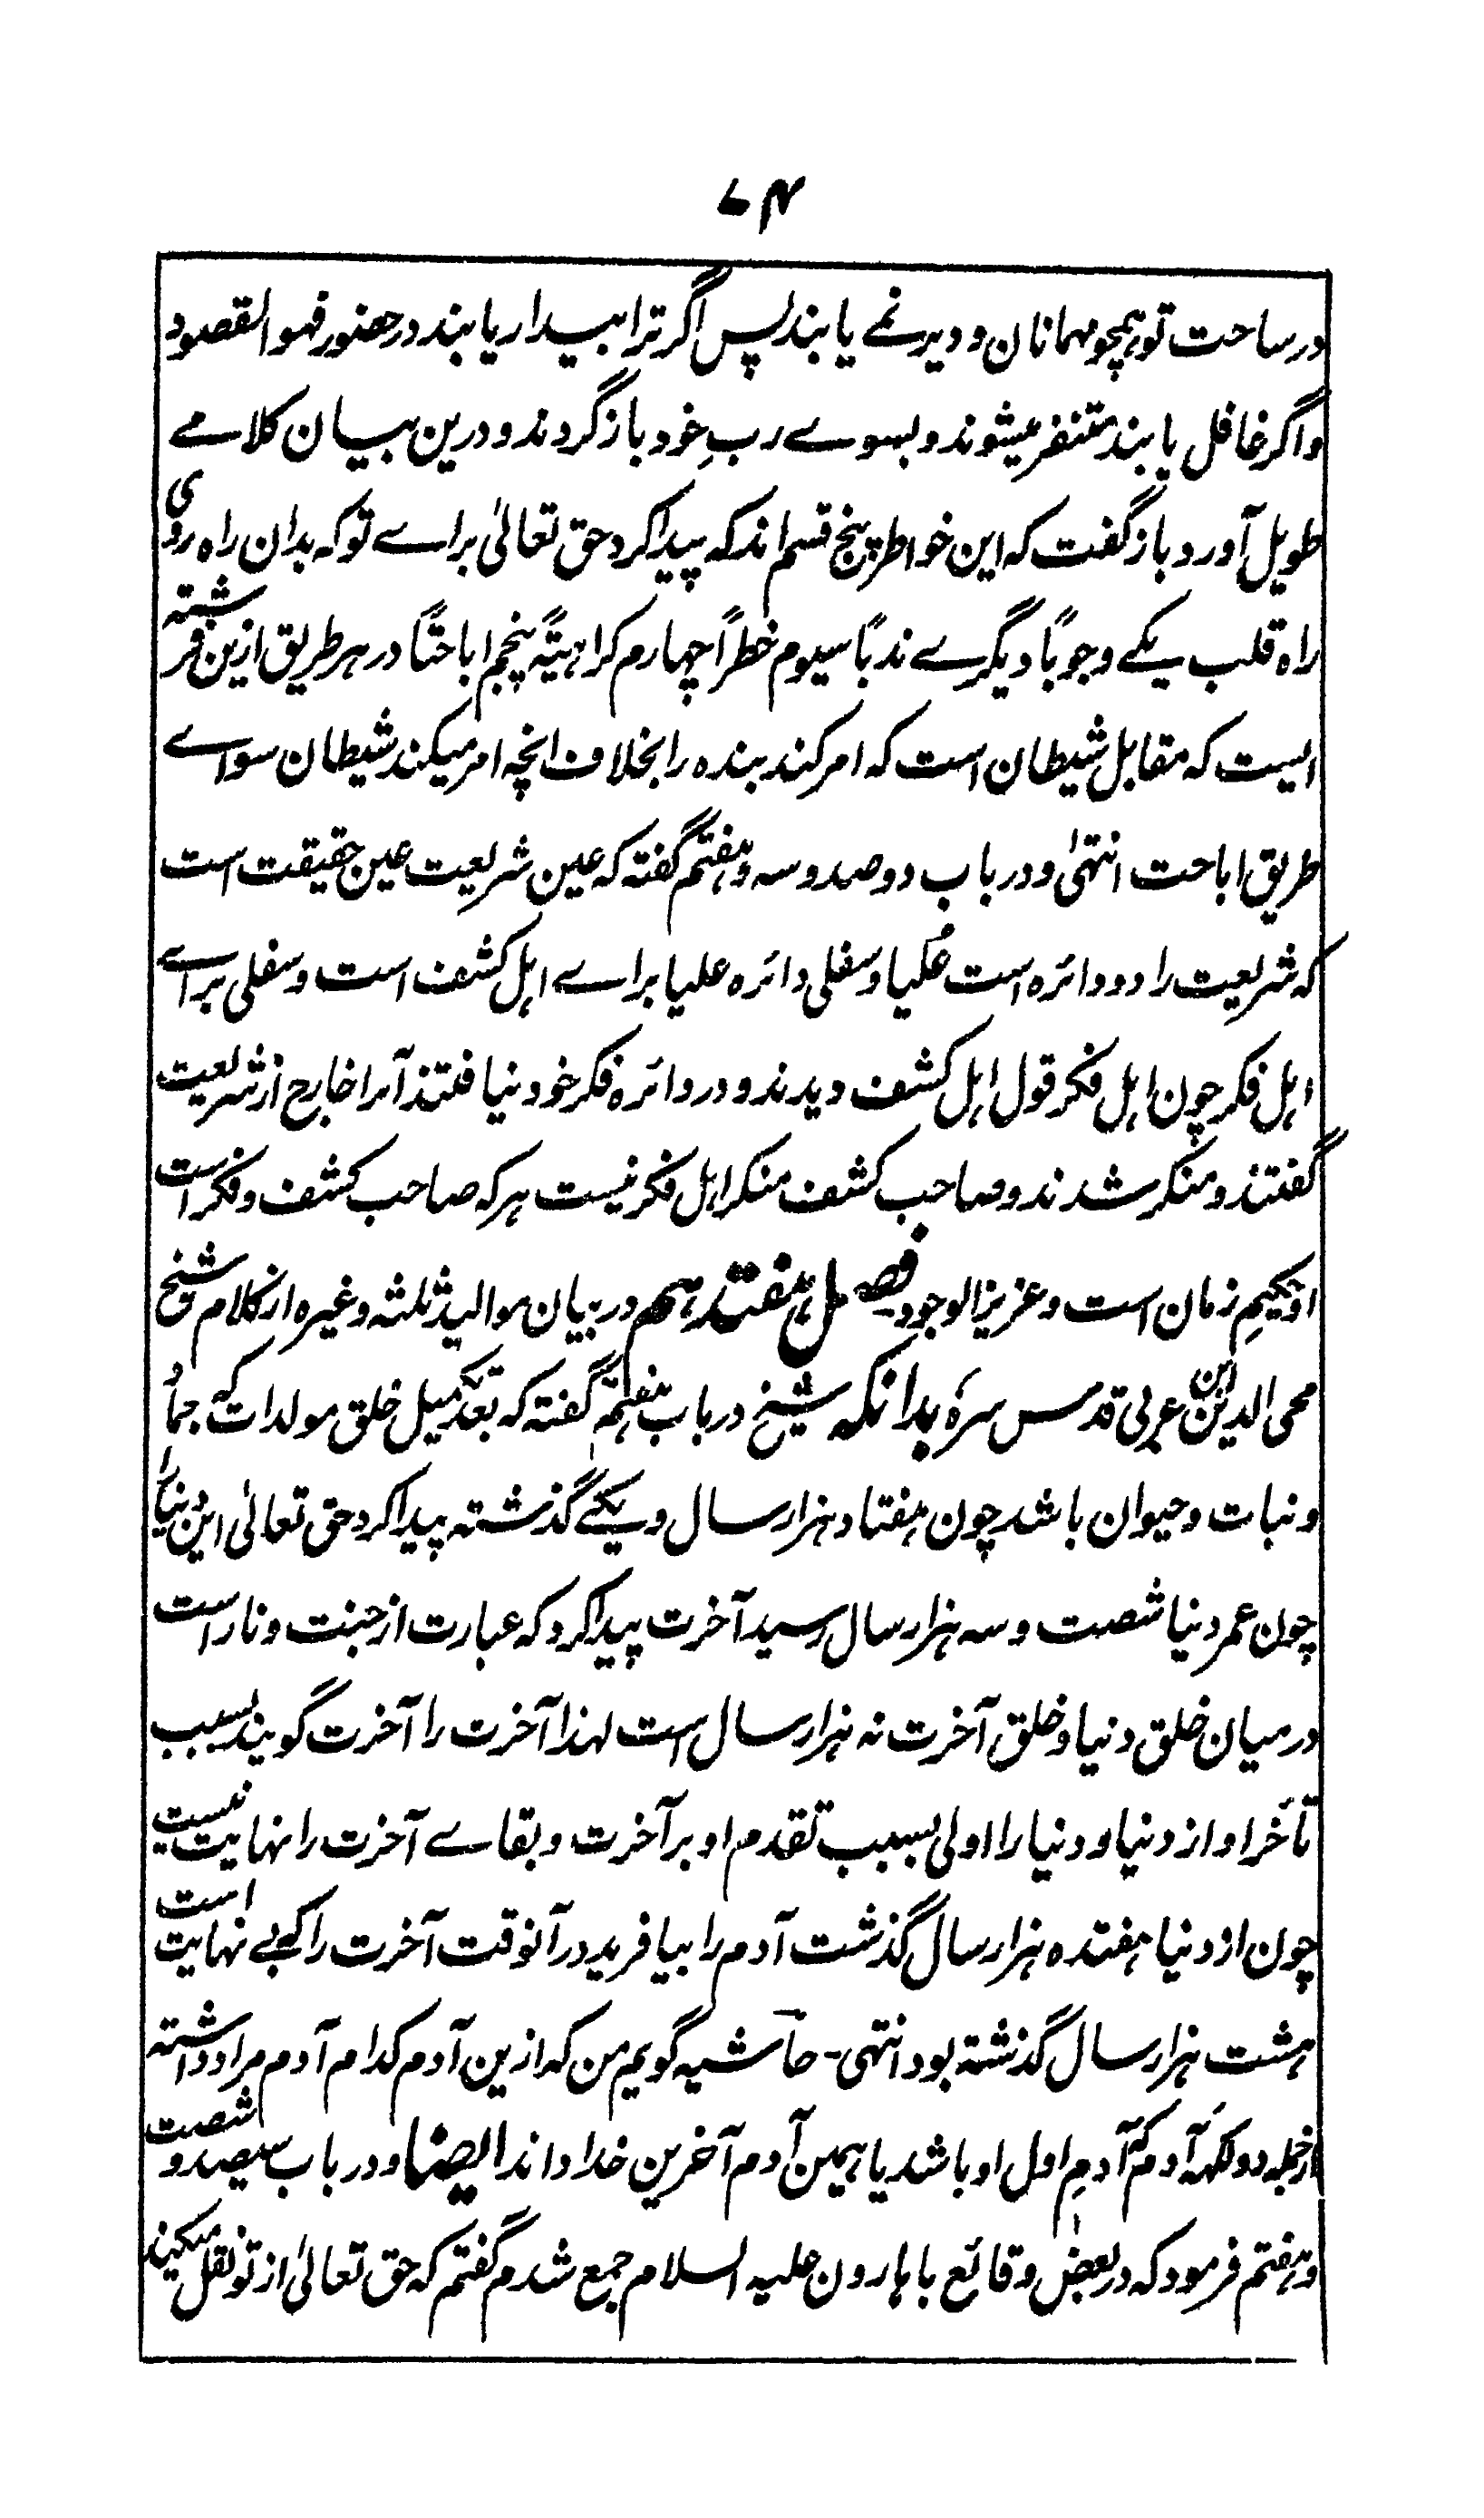 ۷۴
در ساحت تو همچو مهمانان و دیر نمے یابند پس اگر ترا بیدار یابند در حضور فهو المقصود
و اگر غافل یابند متنفر میشوند و بسوے ربِ خود باز گردند و درین بیان کلامے
طویل آورد و باز گفت که این خواطر پنج قسم اند که پیدا کرد حق تعالیٰ براے تو که بدان راه روی
راه قلب یکے وجوباً دیگرے ندباً سیوم خطراً چهارم کراهیتةً پنجم اباحتاً در هر طریق ازین فرشته
ایست که مقابل شیطان است که امر کند بنده را بخلاف انچه امر میکند شیطان سواے
طریق اباحت انتهیٰ و در باب دو صد و سه و هفتم گفته که عین شریعت عین حقیقت است
که شریعت را دو دائره است عُلیا و سفلی دائره علیا براے اهل کشف است و سفلی براے
اهل فکر چون اهل فکر قول اهل کشف دیدند و در دائره فکر خود نیافتند آنرا خارج از شریعت
گفتند و منکر شدند و صاحب کشف منکر اهل فکر نیست هر که صاحب کشف و فکر است
او حکیمِ زمان است و عزیز الوجود۔ فصل هفتدهم در بیان موالید ثلثه و غیره از کلام شیخ
محی الدین ابن عربی قدس سره بدانکه شیخ در باب هفتم گفته که بعد تکمیل خلق مولدات که جماد
و نبات و حیوان باشد چون هفتاد هزار سال و یکے گذشته پیدا کرد حق تعالیٰ این دنیا را
چون عمر دنیا شصت و سه هزار سال رسید آخرت پیدا کرد که عبارت از جنت و نار است
در میان خلق دنیا و خلق آخرت نه هزار سال است لهذا آخرت را آخرت گویند بسبب
تأخر او از دنیا و دنیا را اولیٰ بسبب تقدم او بر آخرت و بقاے آخرت را نهایت نیست
چون از دنیا هفتده هزار سال گذشت آدم را بیافرید در آنوقت آخرت را که بے نهایت است
هشت هزار سال گذشته بود انتهی۔ حاشیه گویم من که ازین آدم کدام آدم مراد داشته
از جمله دو لکهه آدم که آدمِ اول او باشد یا همین آدم آخرین خدا داند ایضاً و در باب سیصد و شصت
و هفتم فرمود که در بعض وقائع با هارون علیه السلام جمع شدم گفتم که حق تعالیٰ از تو نقل میکند